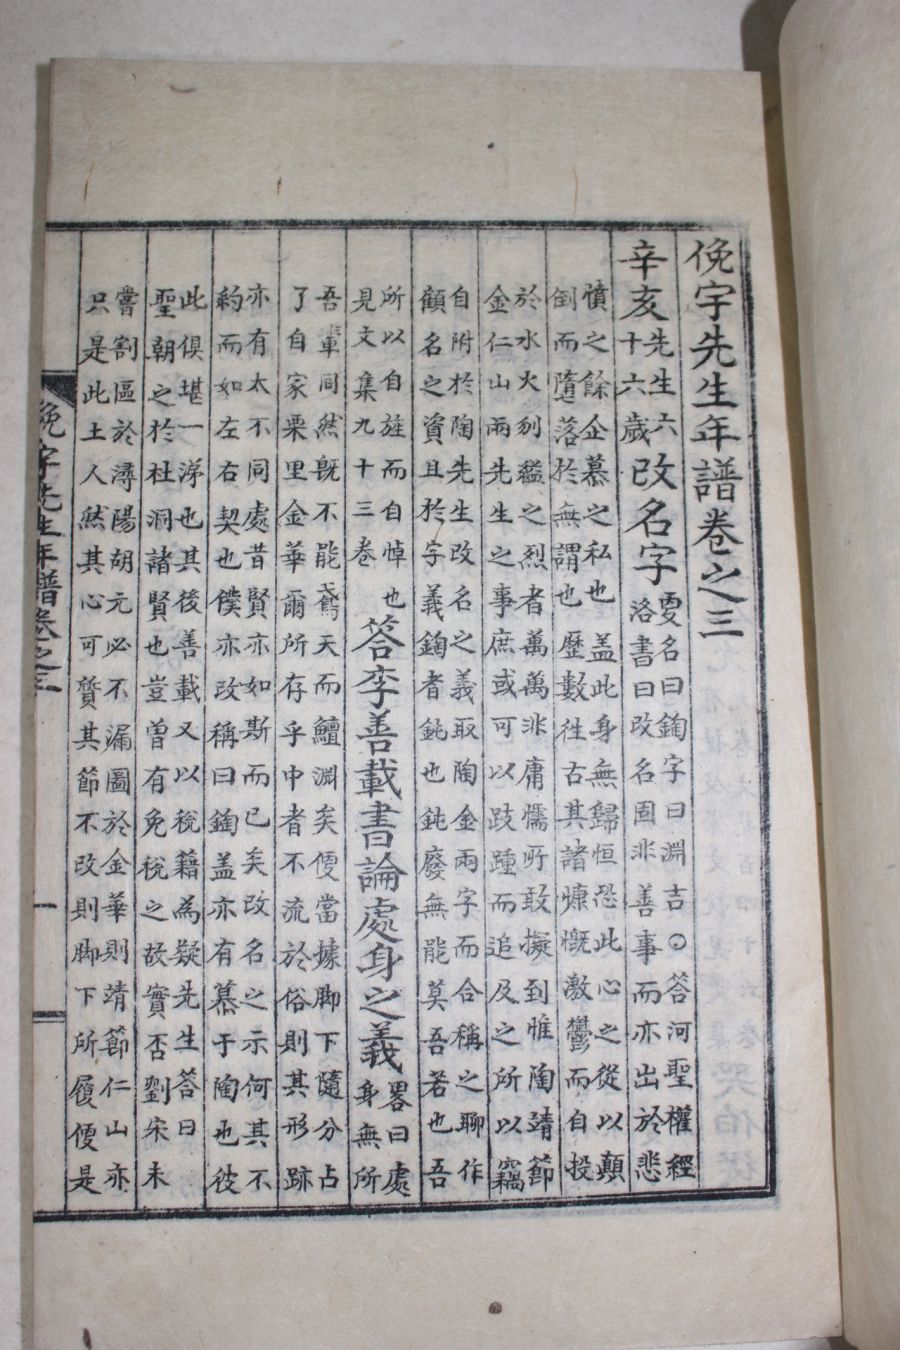 俛宇先生年譜卷之三
辛亥
先生六
十六歲
改名字
叓名曰鋾字曰淵吉○答河聖權經
洛書曰改名固非善事而亦出於悲
憤之餘企慕之私也盖此身無歸恒恐此心之從以顛
倒而墮落於無謂也歷數徃古其諸慷慨激鬱而自投
於水火刎縊之烈者萬萬非庸懦所敢擬到惟陶靖節
金仁山兩先生之事庶或可以跂踵而追及之所以竊
自附於陶先生改名之義取陶金兩字而合稱之聊作
顧名之資且於字義鋾者鈍也鈍廢無能莫吾若也吾
所以自旌而自悼也
見文集九十三卷
答李善載書論處身之義
畧曰處
身無所
吾輩同然旣不能鳶天而鱣淵矣便當據脚下隨分占
了自家栗里金華爾所存乎中者不流於俗則其形跡
亦有太不同處昔賢亦如斯而已矣改名之示何其不
約而如左右契也僕亦改稱曰鋾盖亦有慕于陶也彼
此俱堪一涕也其後善載又以稅籍為疑先生答曰
聖朝之於杜洞諸賢也豈曾有免稅之故實否劉宋未
嘗割區於潯陽胡元必不漏圖於金華則靖節仁山亦
只是此土人然其心可質其節不改則脚下所履便是
俛宇先生年譜卷之三
一